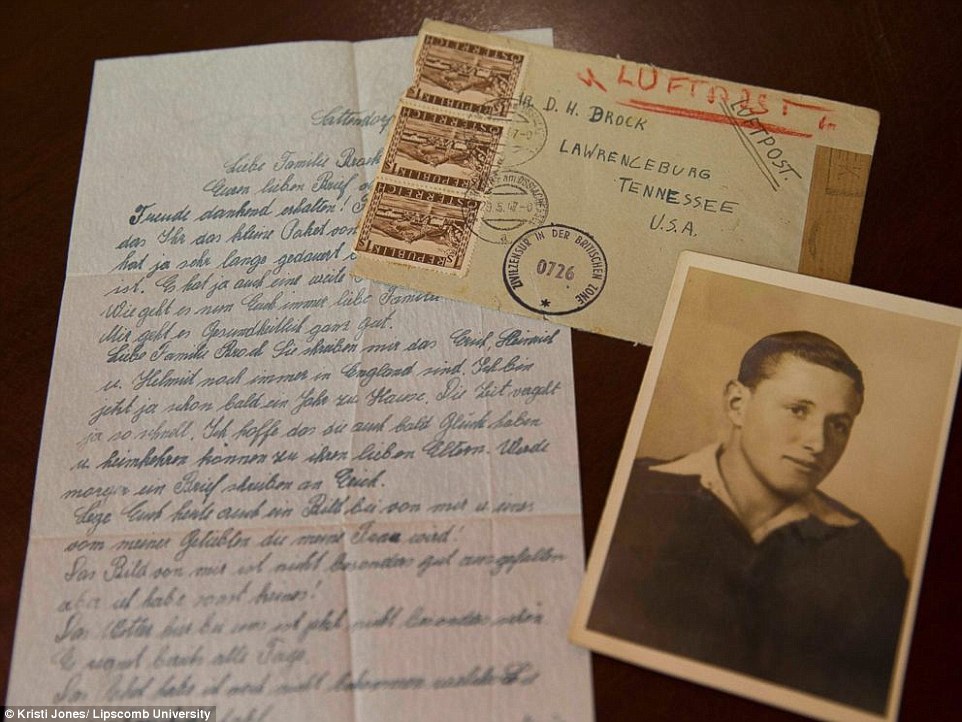 Sattendorf
Liebe Familie Brock
Euren lieben Brief
Freude dankend erhalten!
das Ihr das kleine Paket von
hat ja sehr lange gedauert
ist. Es hat ja auch eine weite
Wie geht es nun Euch immer liebe Familie
Mir geht es Gesundheitlich ganz gut.
Liebe Familie Brock Sie schreiben mir das Erich, Heinrich
u. Helmut noch immer in England sind. Ich bin
jetzt ja schon bald ein Jahr zu Hause. Die Zeit vergeht
ja so schnell. Ich hoffe das die auch bald Glück haben
u. heimkehren können zu ihren lieben Eltern. Werde
morgen ein Brief schreiben an Erich.
Lege Euch heute auch ein Bild bei von mir u. eines
vom meiner Geliebten die meine Frau wird!
Das Bild von mir ist nicht besonders gut ausgefallen
aber ich habe sonst keines!
Das Wetter hier bei uns ist jetzt nicht besonders schön
Es regnet bald alle Tage.
Das habe ich noch nicht bekommen welche
REPUBLIK ÖSTERREICH
REPUBLIK ÖSTERREICH
REPUBLIK ÖSTERREICH
LUFTPOST
LUFTPOST.
MR. D. H. BROCK
LAWRENCEBURG
TENNESSEE
U.S.A.
ZIVILZENSUR IN DER BRITISCHEN ZONE
0726
© Kristi Jones/ Lipscomb University